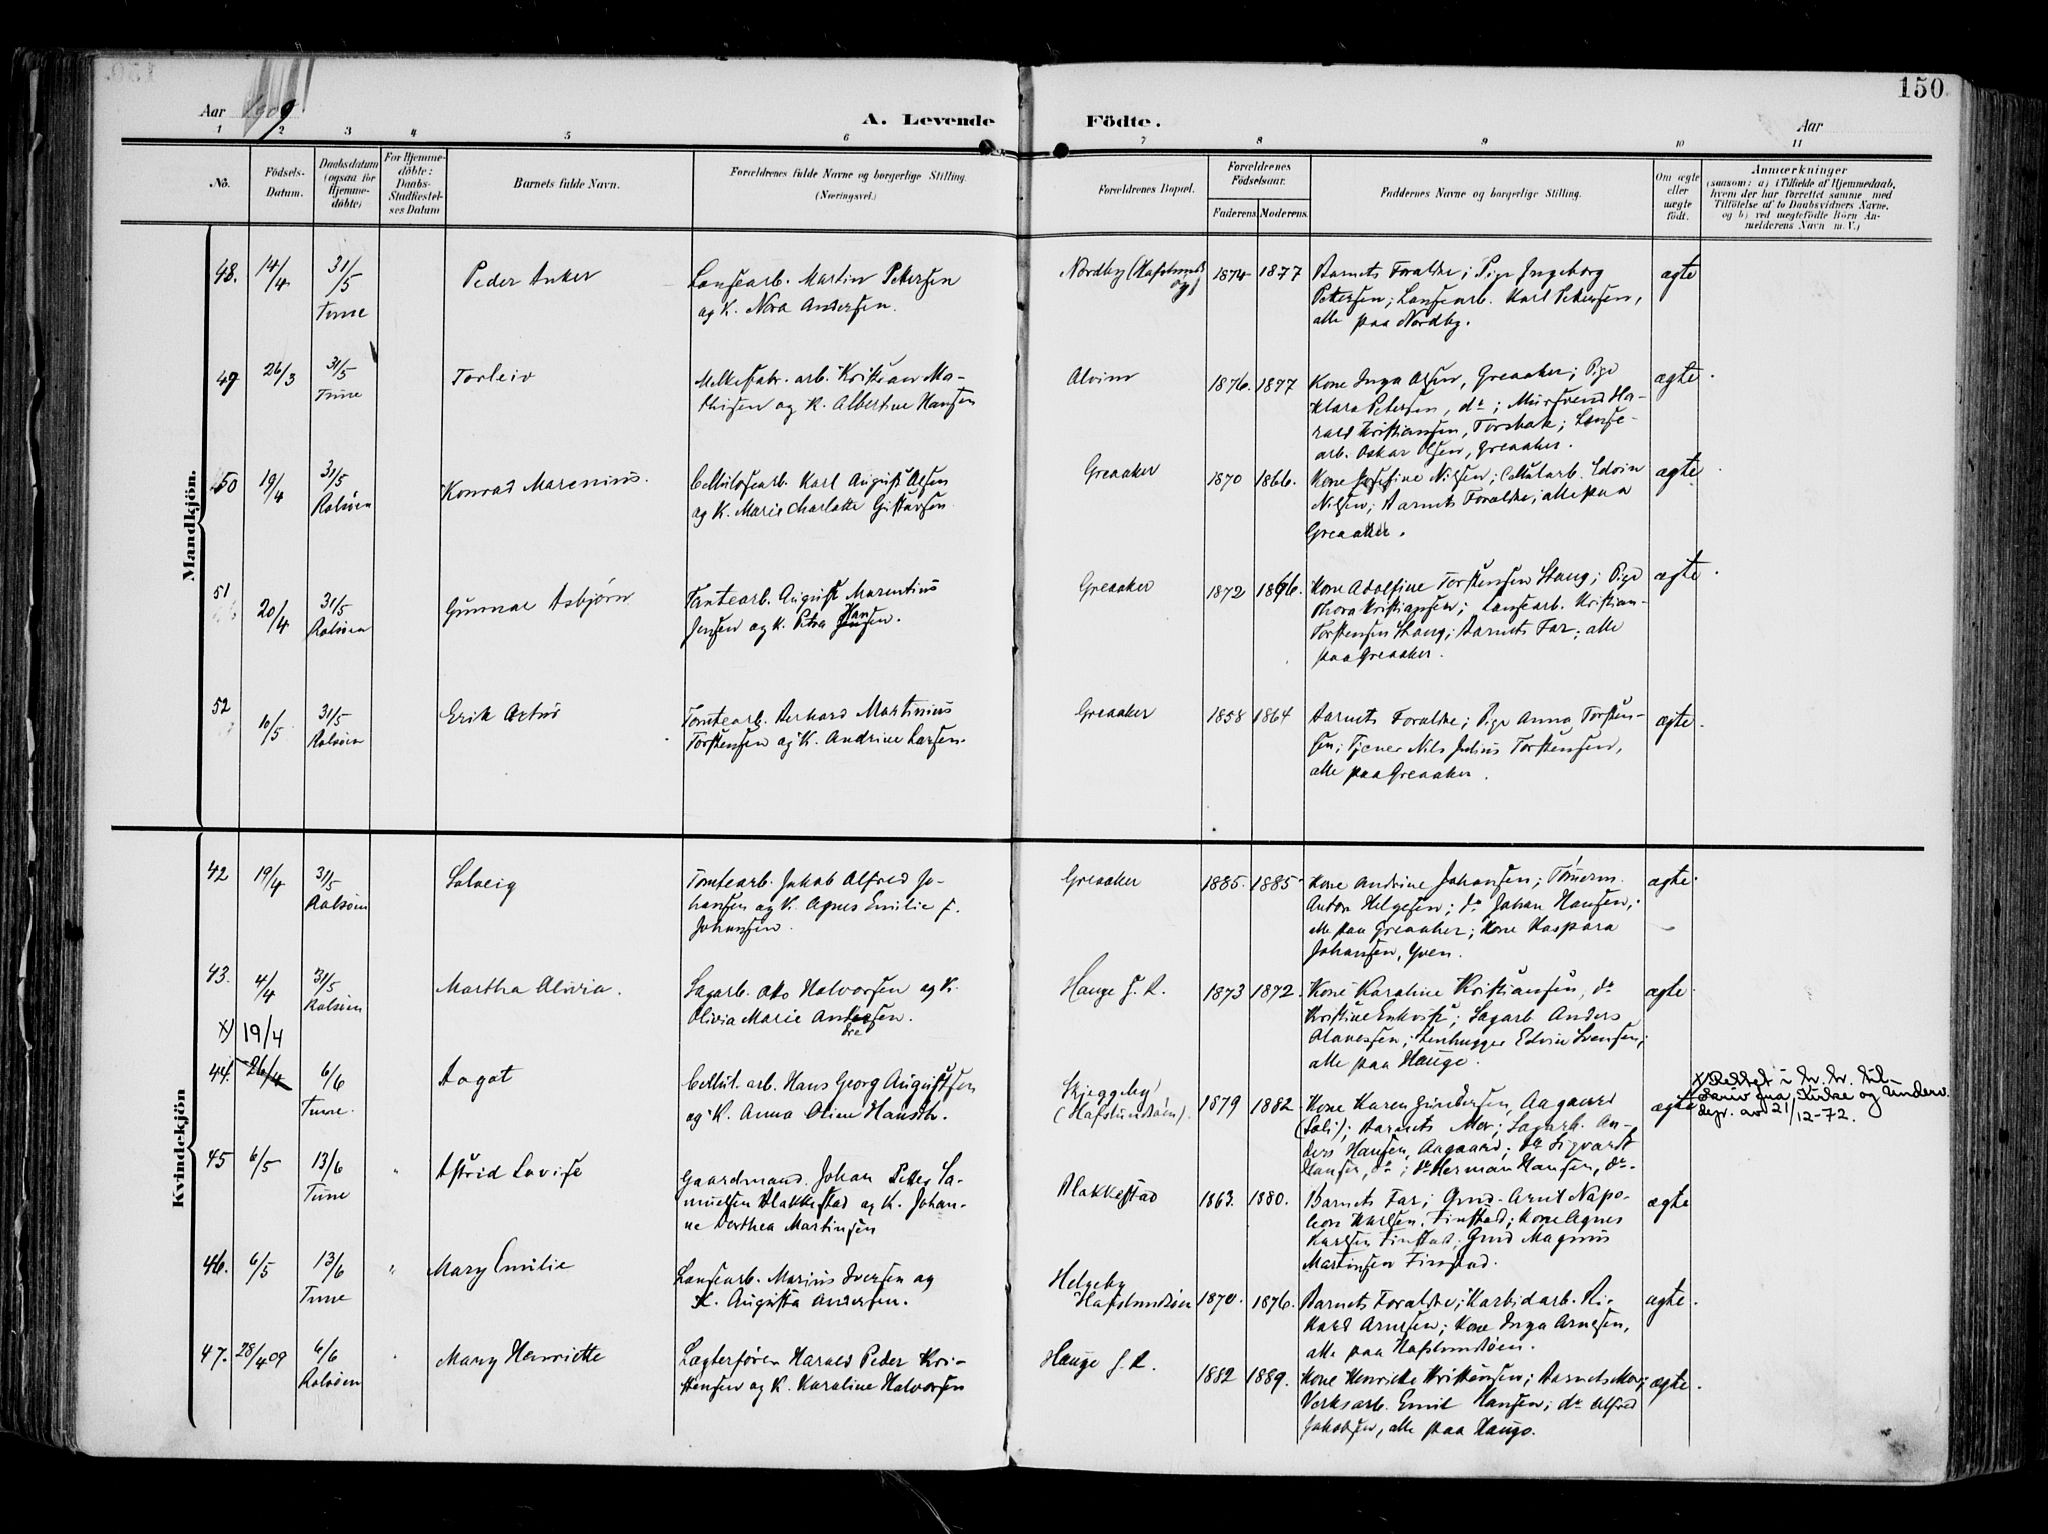 150
Aar 1909
A. Levende Födte.
Aar
1 2 3 4 5 6 7 8 9 10 11
No.
Födsels-
Datum.
Daabsdatum
(ogsaa for
Hjemme-
döbte)
For Hjemme-
döbte:
Daabs-
Stadfæstel-
ses Datum
Barnets fulde Navn.
Forældrenes fulde Navne og borgerlige Stilling.
(Næringsvei.)
Forældrenes Bopæl.
Forældrenes
Födselsaar.
Faderens. Moderens.
Faddernes Navne og borgerlige Stilling.
Om ægte
eller
uægte
födt.
Anmærkninger
(saasom: a) i Tilfælde af Hjemmedaab,
hvem der har forrettet samme med
Tilföielse af to Daabsvidners Navne,
og b) ved uægtefödte Börn An-
melderens Navn m. V.)
Mandkjön.
48. 14/4
31/5
Tune
Peder Anker
Lænsearb. Martin Petersen
og K. Nora Andersen.
Nordby (Hafslunds
1874 1877
Barnets Forældre; Pige Ingeborg
Petersen; Lænsearb. Karl Petersen,
alle paa Nordby.
ægte
49 26/3
31/5
Tune
Torleiv
Melkefabr. arb. Kristian Ma-
thisen og K. Albertine Hansen
Alvim
1876. 1877
Kone Inga Olsen, Greaaker; Pige
Klara Petersen, do; Mursvend Ha-
rald Kristiansen, Torsbak; Lænse-
arb. Oskar Olsen, Greaaker.
ægte
50 19/4
31/5
Rolsøen
Konrad Marenius.
Cellulosearb. Karl August Olsen
og K. Marie Charlotte Gustavsen
Greaaker
1870 1866.
Kone Josefine Nilsen; Cellularb. Edvin
Nilsen; Barnets Forældre, alle paa
Greaaker.
ægte
51 20/4
31/5
Rolsøen
Gunnar Asbjørn
Tomtearb. August Marentius
Jensen og K. Petra Hansen.
Greaaker
1872 1866.
Kone Adolfine Torstensen Haug; Pige
Thora Kristiansen; Lænsearb. Kristian
Torstensen Haug; Barnets Far; alle
paa Greaaker.
ægte
52 10/5
31/5
Rolsøen
Erik Arthur
Tomtearb. Berhard Martinius
Torstensen og K. Andrine Larsen.
Greaaker
1858 1864
Barnets Forældre; Pige Anna Torsten-
sen; Tjener Nils Julius Torstensen,
alle paa Greaaker.
ægte
Kvindekjön
42 19/4
31/5
Rolsøen
Solveig
Tomtearb. Jakob Alfred Jo-
hansen og K. Agnes Emilie f.
Johansen.
Greaaker
1885. 1885.
Kone Andrine Johansen; Tømerm.
Anton Helgesen; do Johan Hansen;
alle paa Greaaker; Kone Kaspara
Johansen, Yven.
ægte.
43. 4/4
31/5
Rolsøen
Martha Olivia.
Sagarb. Otto Halvorsen og K.
Olivia Marie Andersen.
Hauge f. R.
1873 1872.
Kone Karoline Kristiansen, do
Kristine Enkvist; Sagarb Anders
Olavessen; Stenhugger Edvin Svensen;
alle paa Hauge.
ægte.
x) 19/4
44. 26/4
6/6
Tune.
Aagot
Cellul. arb. Hans Georg Augustsen
og K. Anna Oline Hansdtr.
Skjeggeby
(Hafslundsøen).
1879 1882.
Kone Karen Gundersen, Aagaard
(Soli); Barnets Mor; Sagarb. An-
ders Hansen, Aagaard; do Sigvardt
Hansen, do; do Herman Hansen, do.
ægte
x) Rettet i h. h. til
skriv fra Kirke og Underv.
dep. av 21/12-72.
45 6/5
13/6
Tune
"
Astrid Lovise
Gaardmand. Johan Petter Sa-
muelsen Blakkestad og K. Johan-
ne Dorthea Martinsen
Blakkestad
1863. 1880.
Barnets Far; Gmd. Arnt Napo-
leon Karlsen, Finstad; Kone Agnes
Karlsen Finstad; Gmd Magnus
Martinsen Finstad.
ægte
46. 6/5
13/6
Tune
"
Mary Emilie
Lænsearb. Marius Iversen og
K. Augusta Andersen.
Helgeby
Hafslundsøen
1870. 1876.
Barnets Forældre; Karbidarb. Ri-
kard Arnesen; Kone Inga Arnesen,
alle paa Hafslundsøen.
ægte.
47. 28/4 09
6/6
Rolsøen
Mary Henriette
Lægterfører Harald Peder Kri-
stensen og K. Karoline Halvorsen
Hauge f. R.
1882 1889.
Kone Henriette Kristensen; Barnets Mor;
Verksarb. Emil Hansen; do Alfred
Jakobsen, alle paa Hauge.
ægte.